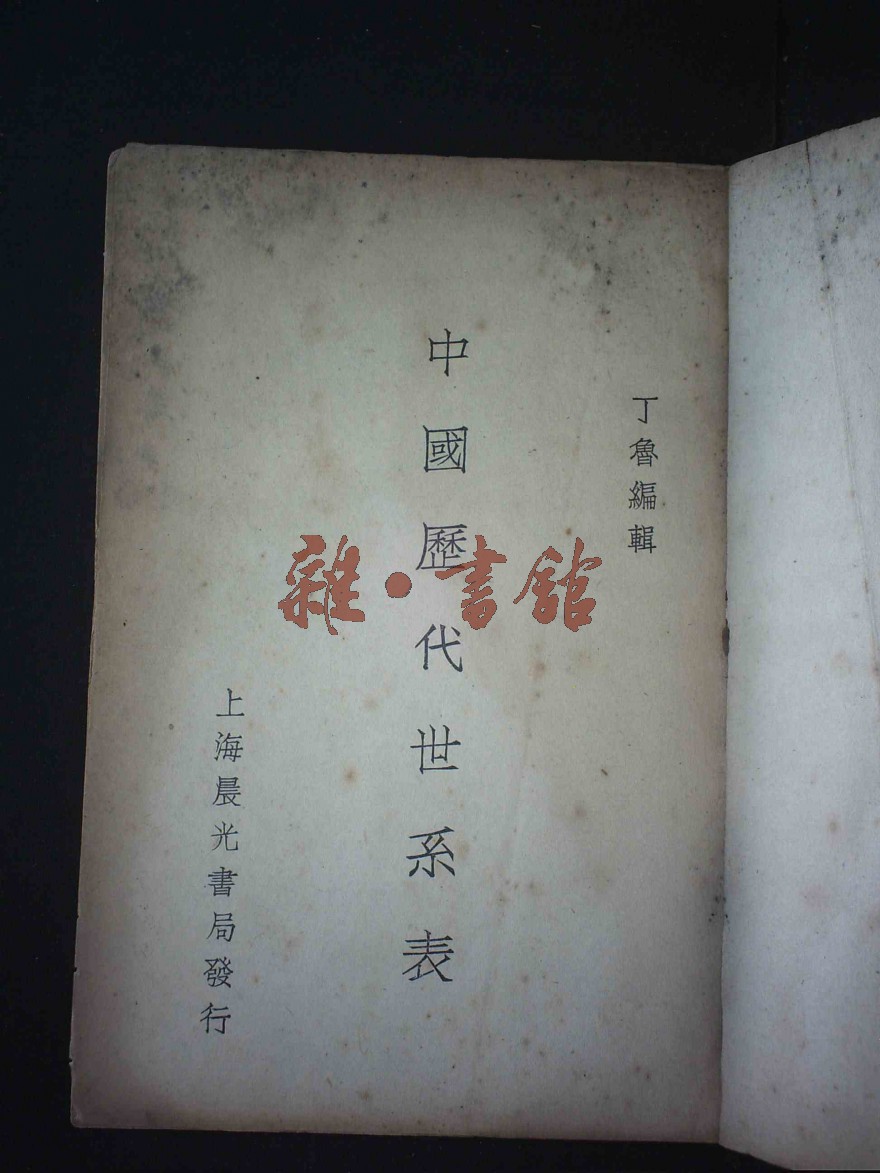 丁魯編輯
中國歷代世系表
上海晨光書局發行
雜·書館